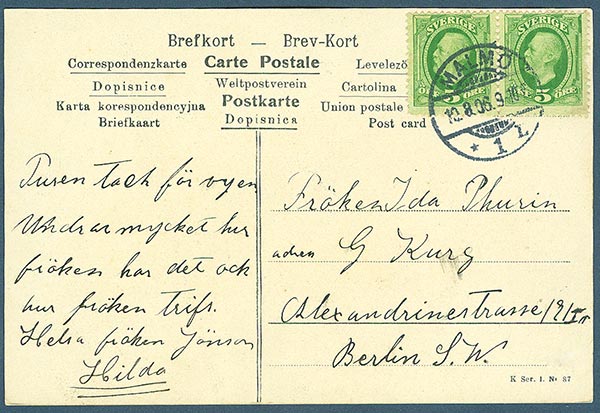 Brefkort — Brev-Kort
Correspondenzkarte Carte Postale Levelező
Dopisnice Weltpostverein Cartolina
Karta korespondencyjna Postkarte Union postale
Briefkaart Dopisnica Post card
SVERIGE SVERIGE
5 ÖRE 5 ÖRE
MALMÖ
10.8.06.9
* 1 L
Tusen tack för vyen
Undrar mycket hur
fröken har det och
hur fröken trifs.
Helsa fröken Jönson
Hilda
Fröken Ida Thurin
adres G Kurg
Alexandrinestrasse
Berlin S.W.
K Ser. 1. No 87